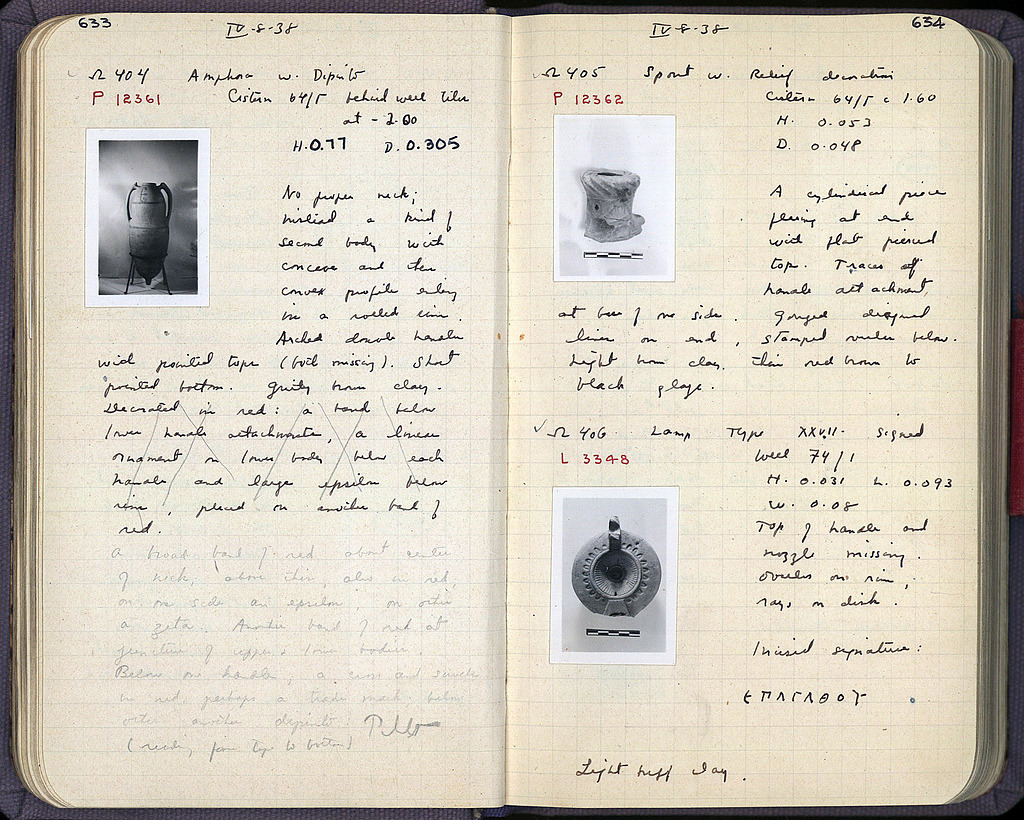 633
IV-8-38
Ω 404 Amphora w. Dipinto
P 12361 Cistern 64/Γ behind well tiles
at -2.00
H. 0.77 D. 0.305
No proper neck;
instead a kind of
second body with
concave and then
convex profile ending
in a rolled rim.
Arched double handles
with pointed tops (both missing). Short
pointed bottom. Gritty brown clay.
Decorated in red: a band below
lower handle attachments, a linear
ornament on lower body below each
handle and large epsilon below
rim, placed on another band of
red.
A broad band of red about centre
of neck, above this, also in red,
on one side an epsilon, on other
a zeta. Another band of red at
juncture of upper & lower bodies.
Below one handle, a cross and
in red, perhaps a trade mark. below
other another dipinto:
(reading from top to bottom)
634
IV-8-38
Ω 405 Spout w. Relief decoration
P 12362 Cistern 64/Γ c 1.60
H. 0.053
D. 0.048
A cylindrical piece
flaring at end
with flat pierced
top. Traces of
handle attachment
at base of one side. Gouged diagonal
lines on end, stamped circles below.
Light brown clay, thin red brown to
black glaze.
Ω 406 Lamp Type XXVII. Signed
L 3348 Well 74/1
H. 0.031 L. 0.093
W. 0.08
Top of handle and
nozzle missing.
Ovules on rim,
rays on disk.
Incised signature:
ЄΠΑΓΑΘΟΥ
Light buff clay.